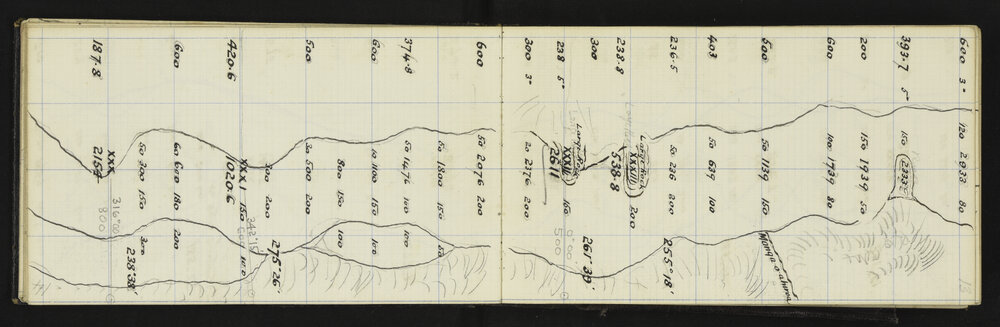 600 3° 120 2033 80
393.7 5° 150 2333
200 150 1939 50
600 100 1739 80
500 50 1139 150
403 50 639 100
236.5 50 236 200 255°18'
Large Rock
238.8 XXXIII 200
538.8
300 261°39'
Large Rock
238 5° XXXII 150
2611
300 3° 20 2376 200
600 50 2076 200
50 1800 150 50
374.8 50 1476 100 100
600 10 1100 150 100
800 150 100
500 30 500 200
300 200 275°26'
XXXI 150 100
420.6 1020.6
600 60 600 180 200
50 300 150 300
238°38'
XXX
187.8 2154